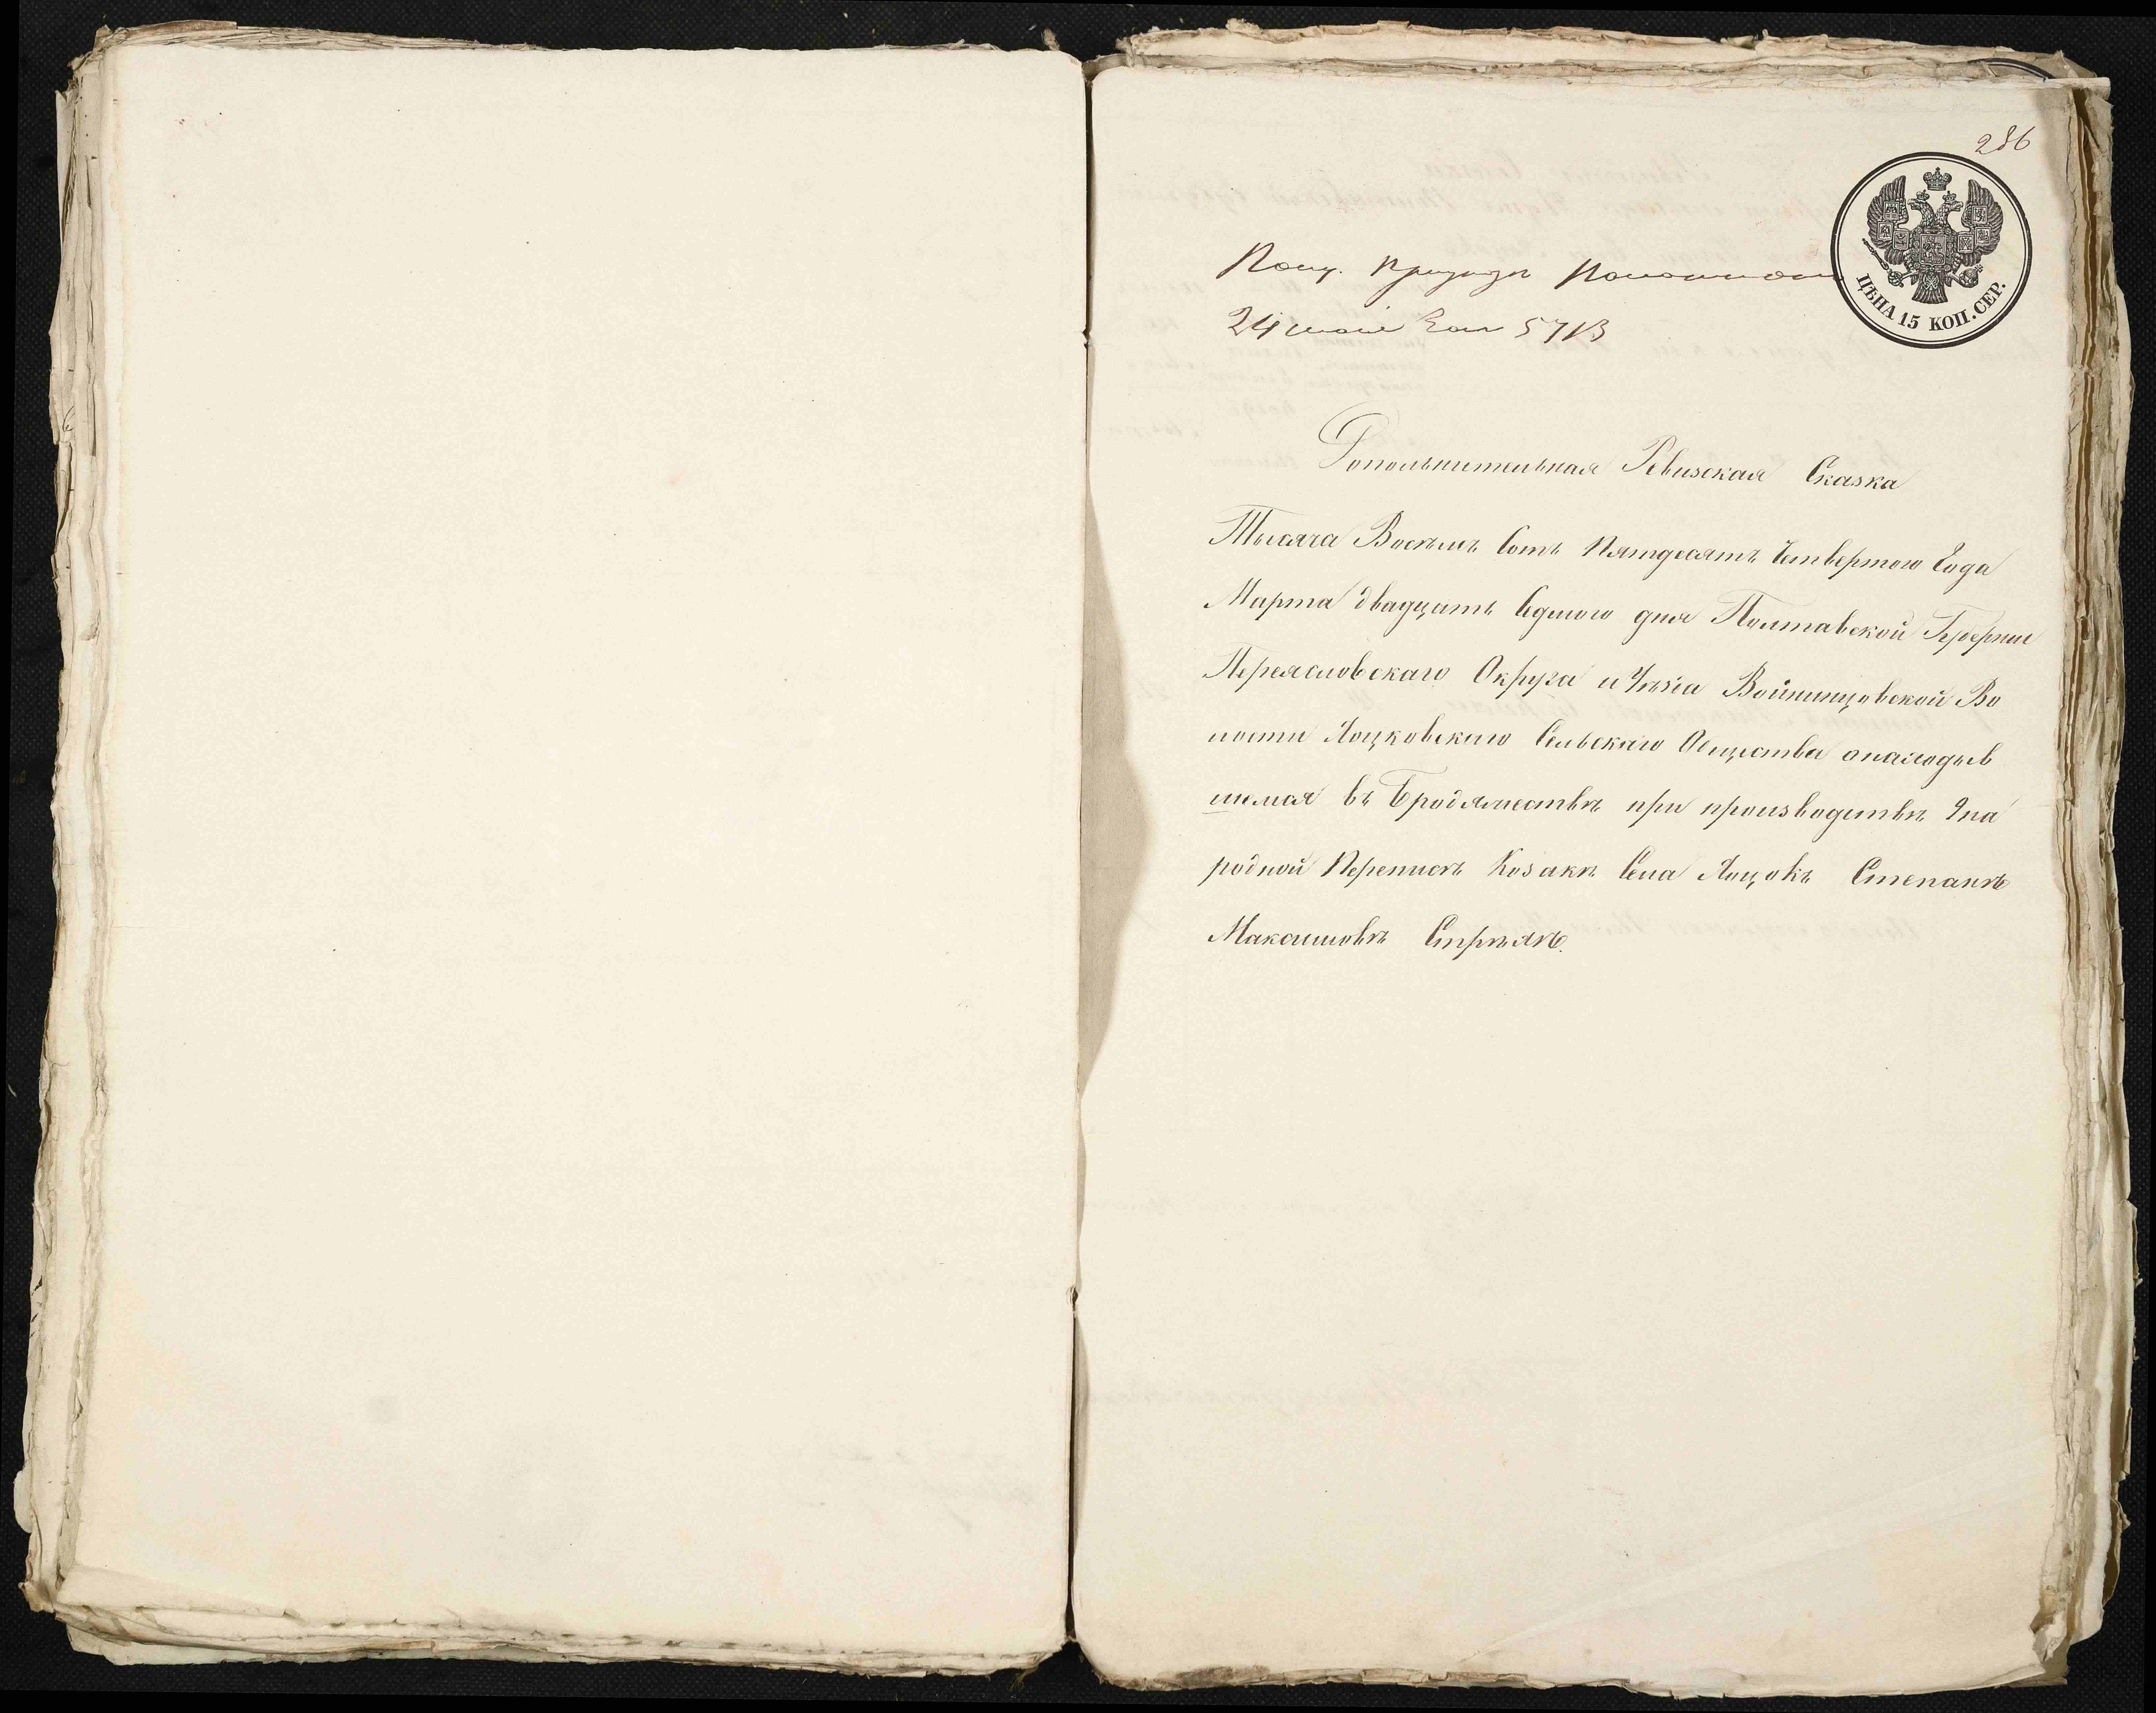 286
ЦѢНА 15 КОП. СЕР.
24
Дополнительная Ревизская Сказка
Тысяча Восемь Сотъ Пятдесятъ Четвертого Года
Марта двадцать Седмого дня Полтавской Губерніи
Переясловскаго Округа и Уѣзда Войтовской Во
лости Лоцковскаго Сельскаго Общества онаходив
шемся въ Бродяжествѣ при производствѣ 9 на
родной Переписѣ Козакѣ Села Лоцокъ Степанѣ
Максимовѣ Стрѣлѣ.